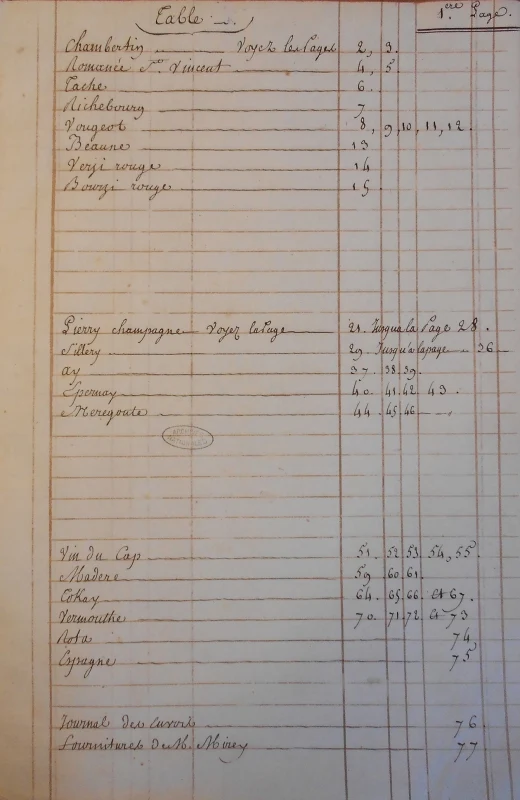 Table
1.ere Page.
Chambertin Voyez les Pages 2, 3.
Romanée St. Vincent 4, 5.
Tache 6.
Richebourg 7
Vougeot 8, 9, 10, 11, 12.
Beaune 13
Verzi rouge 14
Bouzi rouge 15
Pierry champagne Voyez la Page 21. Jusqua la Page 28.
Sillery 29. Jusqu'a la page 36
ay 37. 38. 39.
Epernay 40. 41. 42. 43.
Meregoute 44. 45. 46
Vin du Cap 51. 52. 53. 54, 55.
Madere 59 60. 61.
Tokay 64. 65. 66. et 67.
Vermouthe 70. 71. 72. et 73
Rota 74,
Espagne 75
Journal des 76
fournitures de M. 77